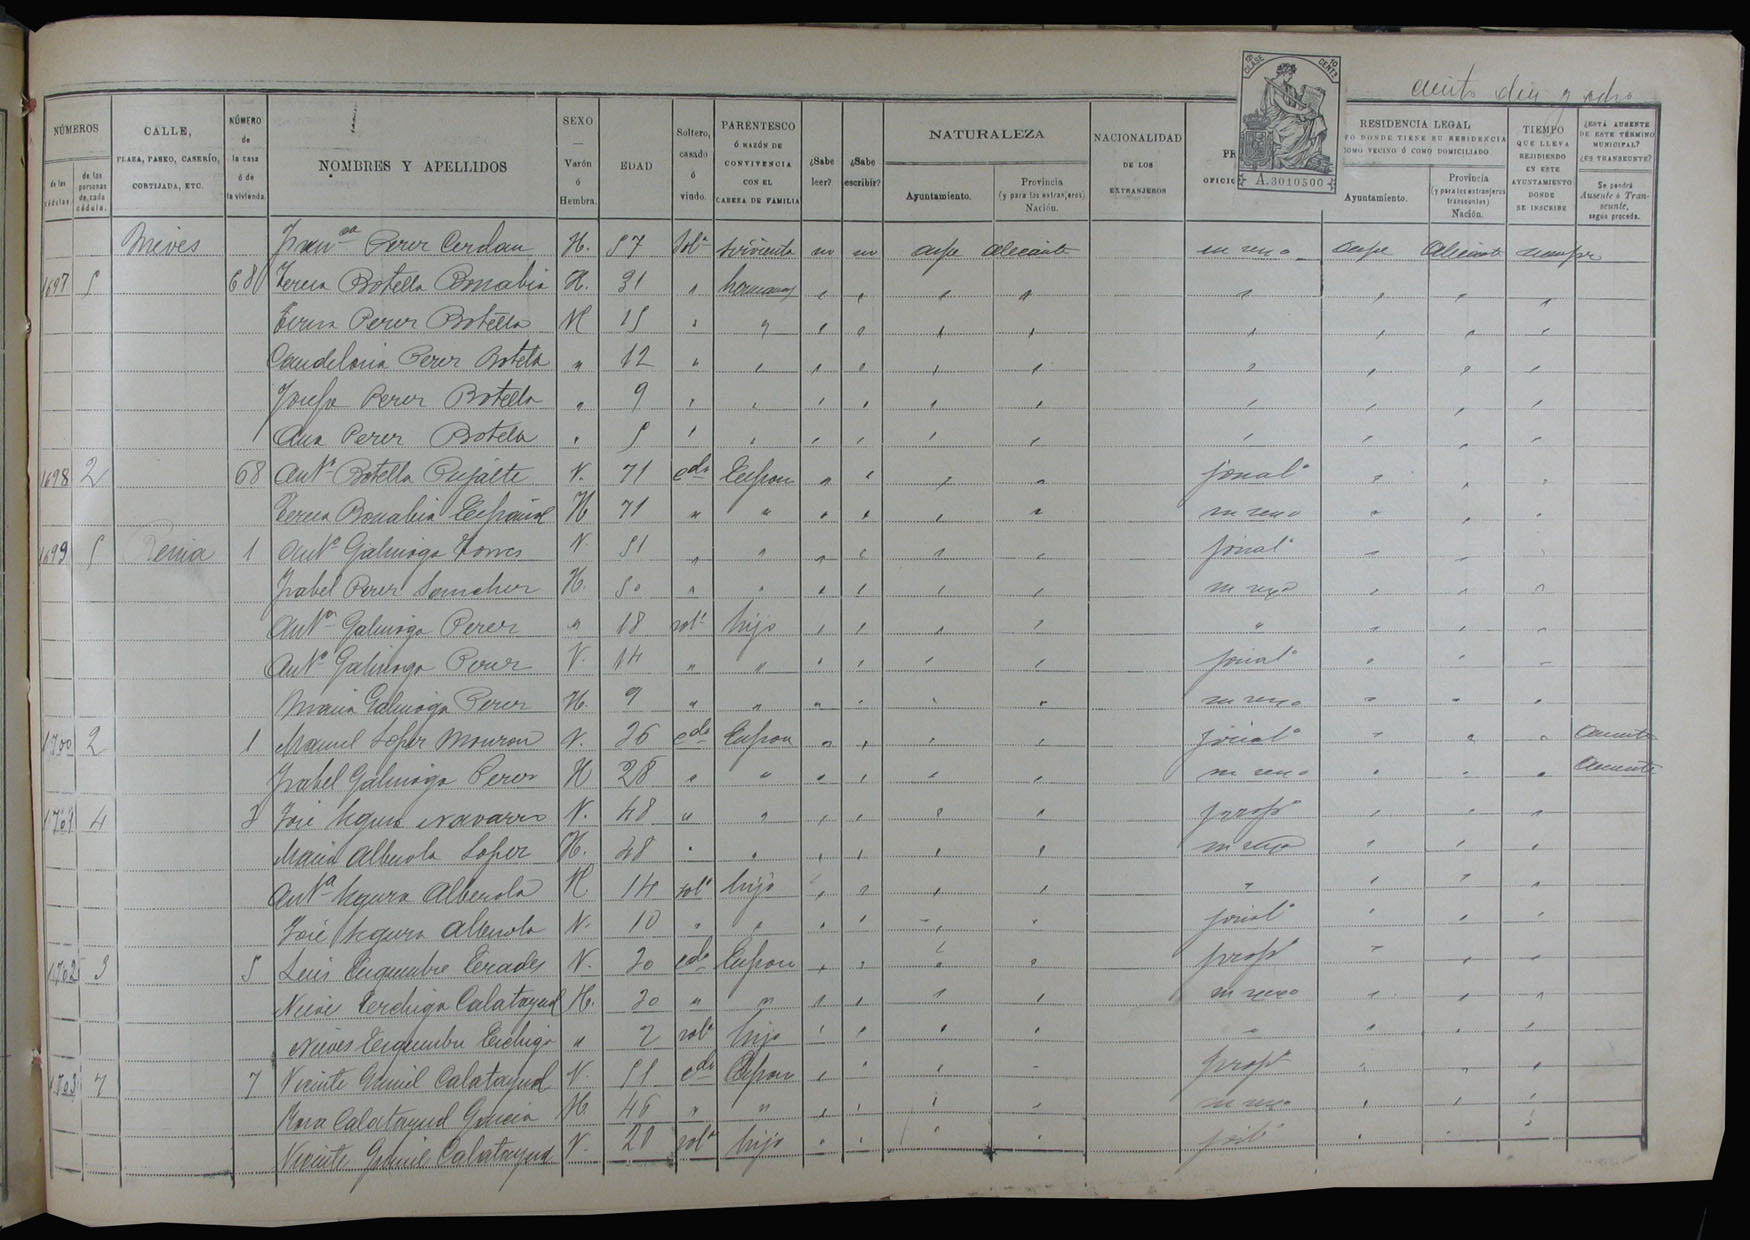 ciento diez y ocho
12ª CLASE 10 CENTS
A.3010500
NÚMEROS
de las cédulas
de las personas de cada cédula.
CALLE, PLAZA, PASEO, CASERÍO, CORTIJADA, ETC.
NÚMERO de la casa ó de la vivienda.
NOMBRES Y APELLIDOS
SEXO — Varón ó Hembra.
EDAD
Soltero, casado ó viudo.
PARENTESCO Ó RAZÓN DE CONVIVENCIA CON EL CABEZA DE FAMILIA
¿Sabe leer?
¿Sabe escribir?
NATURALEZA
Ayuntamiento.
Provincia (y para los extranjeros) Nación.
NACIONALIDAD DE LOS EXTRANJEROS
PR
OFICIO
RESIDENCIA LEGAL
O DONDE TIENE SU RESIDENCIA COMO VECINO Ó COMO DOMICILIADO
Ayuntamiento.
Provincia (y para los extranjeros transeuntes) Nación.
TIEMPO QUE LLEVA RESIDIENDO EN ESTE AYUNTAMIENTO DONDE SE INSCRIBE
¿ESTÁ AUSENTE DE ESTE TÉRMINO MUNICIPAL? ¿ES TRANSEUNTE?
Se pondrá Ausente ó Transeunte, según proceda.
Nieves Franca Perez Cerdan H. 57 Solª sirvienta no no Aspe Alicante su sexo Aspe Alicante siempre
1697 5 Teresa Botella Bonabia H. 31 " hermana " " " " " " " "
Teresa Perez Botella H 15 " " " " " " " " " "
Candelaria Perez Botella " 12 " " " " " " " " " "
Josefa Perez Botella " 9 " " " " " " " " " "
Ana Perez Botella " 5 " " " " " " " " " "
1698 2 68 Antº Botella Pujalte V. 71 cdo Espon " " " " jornalº " " "
Teresa Bonabia Español H 71 " " " " " " su sexo " " "
1699 5 Denia 1 Antº Galinoga Torres V. 51 " " " " " " jornalº " " "
Isabel Perez Sanchez H. 50 " " " " " " su sexo " " "
Antª Galinoga Perez " 18 solª hijo " " " " " " " "
Antº Galinoga Perez V. 14 " " " " " " jornalº " " "
Maria Galinoga Perez H. 9 " " " " " " su sexo " " "
1700 2 1 Manuel Lopez Monzon V. 26 cdo Espon " " " " jornalº " " " Ausente
Isabel Galinoga Perez H 28 " " " " " " su sexo " " " Ausente
1701 4 3 José Segura Navarro V. 48 " " " " " " propº " " "
Maria Alberola Lopez H. 48 " " " " " " su sexo " " "
Antª Segura Alberola H. 14 solª hijo " " " " " " " "
José Segura Alberola V. 10 " " " " " " jornalº " " "
1702 3 5 Luis Erquembre V. 30 cdo Espon " " " " propº " " "
Calatayud H. 30 " " " " " " su sexo " " "
Nieves " 2 solª hijo " " " " " " " "
1703 7 7 Vicente Calatayud V. 51 cdo Espon " " " " propº " " "
Rosa Calatayud Garcia H. 46 " " " " " " su sexo " " "
Vicente Calatayud V. 20 solº hijo " " " " " "